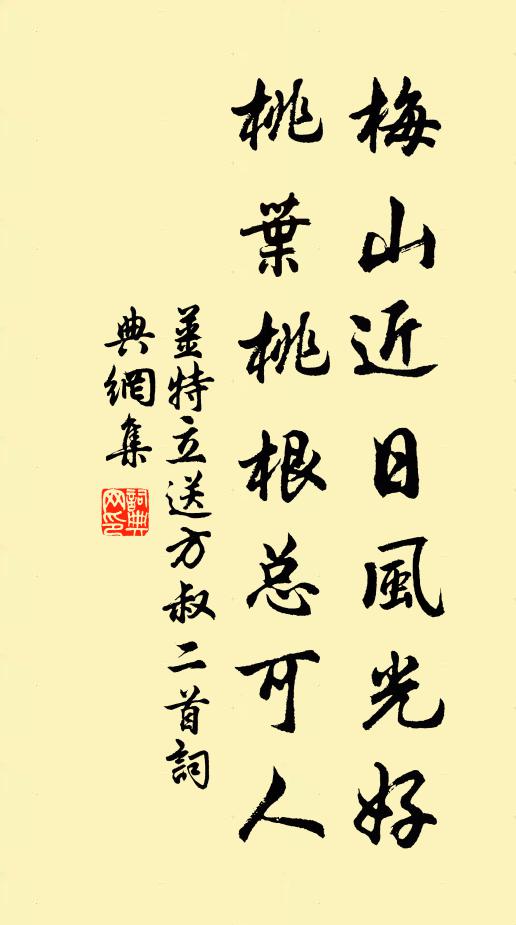 梅山近日風光好
桃葉桃根总可人
薑特立送方叔二首詞
典網集
詞典网印